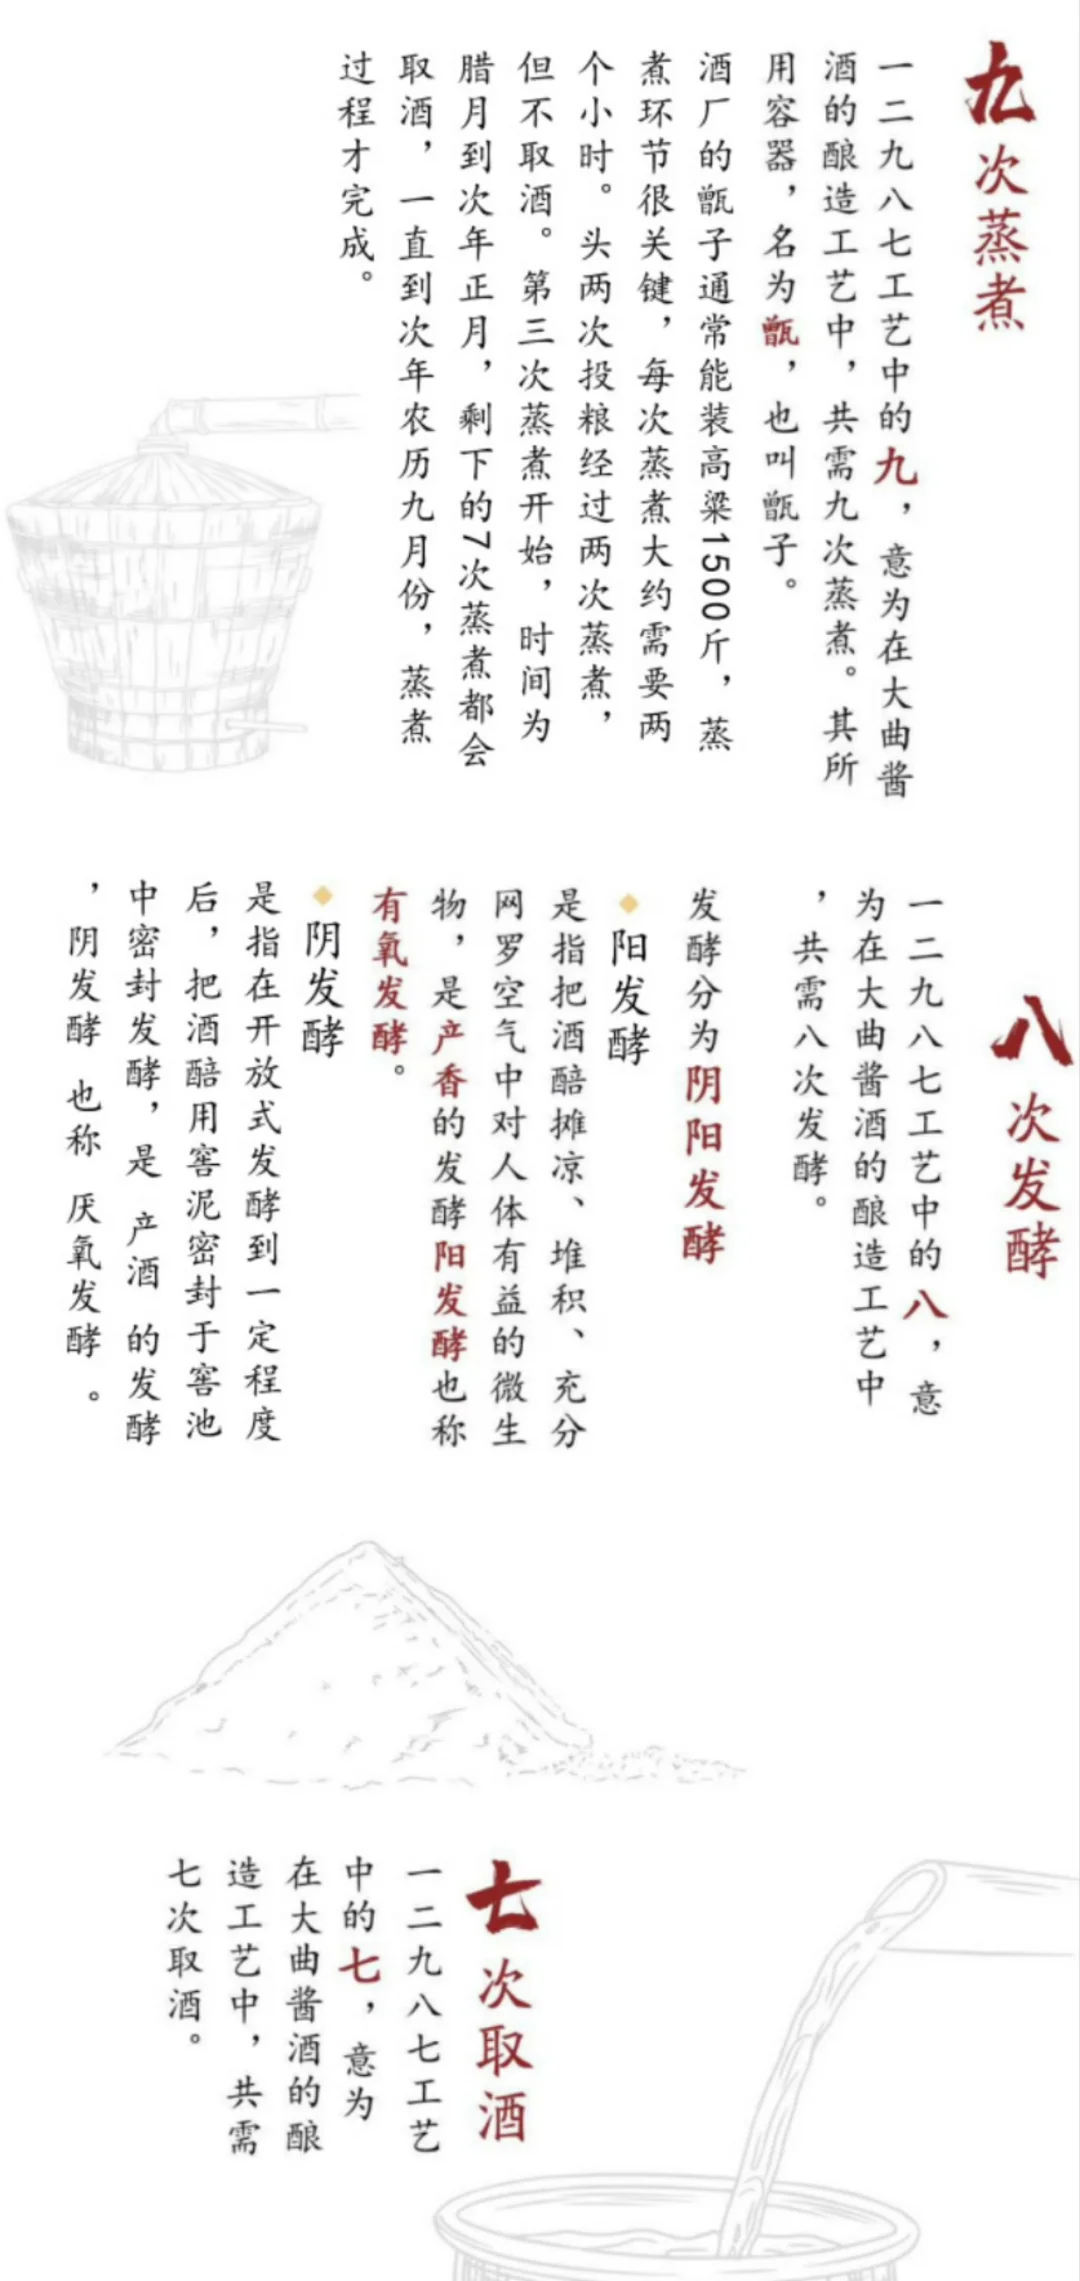 九次蒸煮
一二九八七工艺中的九，意为在大曲酱
酒的酿造工艺中，共需九次蒸煮。其所
用容器，名为甑，也叫甑子。
酒厂的甑子通常能装高粱1500斤，蒸
煮环节很关键，每次蒸煮大约需要两
个小时。头两次投粮经过两次蒸煮，
但不取酒。第三次蒸煮开始，时间为
腊月到次年正月，剩下的7次蒸煮都会
取酒，一直到次年农历九月份，蒸煮
过程才完成。
八次发酵
一二九八七工艺中的八，意
为在大曲酱酒的酿造工艺中
，共需八次发酵。
发酵分为阴阳发酵
阳发酵
是指把酒醅摊凉、堆积、充分
网罗空气中对人体有益的微生
物，是产香的发酵阳发酵也称
有氧发酵。
阴发酵
是指在开放式发酵到一定程度
后，把酒醅用窖泥密封于窖池
中密封发酵，是 产酒 的发酵
，阴发酵 也称 厌氧发酵 。
七次取酒
一二九八七工艺
中的七，意为
在大曲酱酒的酿
造工艺中，共需
七次取酒。